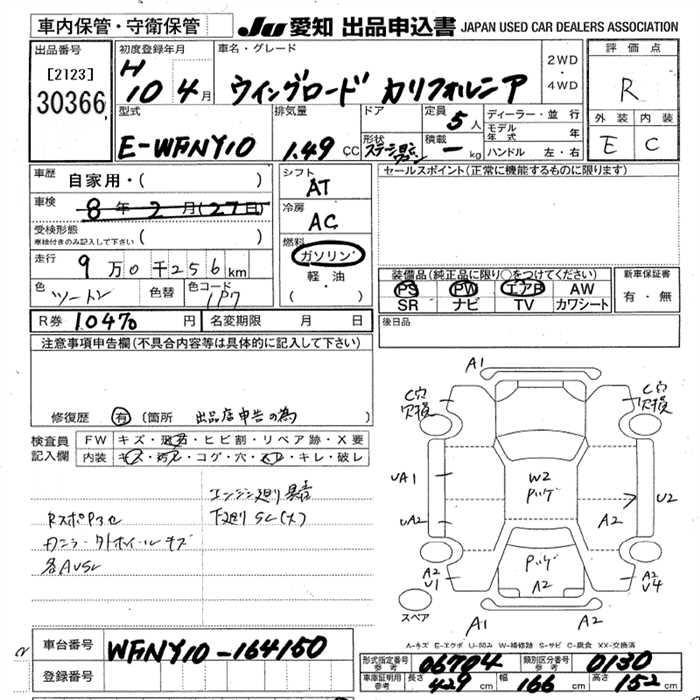 車内保管・守衛保管
JU 愛知 出品申込書 JAPAN USED CAR DEALERS ASSOCIATION
出品番号
[2123]
30366
初度登録年月
H 10 4月
車名・グレード
ウイングロード カリフォルニア
2WD
・
4WD
評価点
R
外装 内装
E C
型式
E-WFNY10
排気量
1.49 CC
ドア
形状
定員 5人
積載 ー kg
ディーラー・並行
モデル年式 年
ハンドル 左・右
車歴 自家用・( )
車検 8年2月(27日)
受検形態
車検付きのみ記入して下さい ( )
走行 9万0千256km
色 ツートン 色替 色コード 1P7
R券 10470円 名変期限 月 日
シフト
AT
冷房
AC
燃料
ガソリン
軽・油
( )
セールスポイント(正常に機能するものに限ります)
装備品(純正品に限り○をつけてください)
PS PW エアB AW
SR ナビ TV カワシート
新車保証書
有・無
後日品
注意事項申告欄(不具合内容等は具体的に記入して下さい)
修復歴 有 (箇所 出品店申告の為 )
検査員記入欄
FW キズ・飛石・ヒビ割・リペア跡・X要
内装 キズ・汚れ・コゲ・穴・スレ・キレ・破レ
エンジン廻り異音
下廻りSC(大)
RスポP3セ
カニラー外ホイールキズ
各AUSC
A1
C穴欠損
C穴欠損
UA1
UA2
W2
Pツゲ
A2
U2
Pツゲ
A2
A2
U1
A2
U4
スペア
A1
A2
A-キズ E-エクボ U-凹み W-補修跡 S-サビ C-腐食 XX-交換済
車台番号 WFNY10-164150
登録番号
形式指定番号 参考 06704 類別区分番号 参考 0130
車庫証明用 参考 長さ 429cm 幅 166cm 高さ 152cm